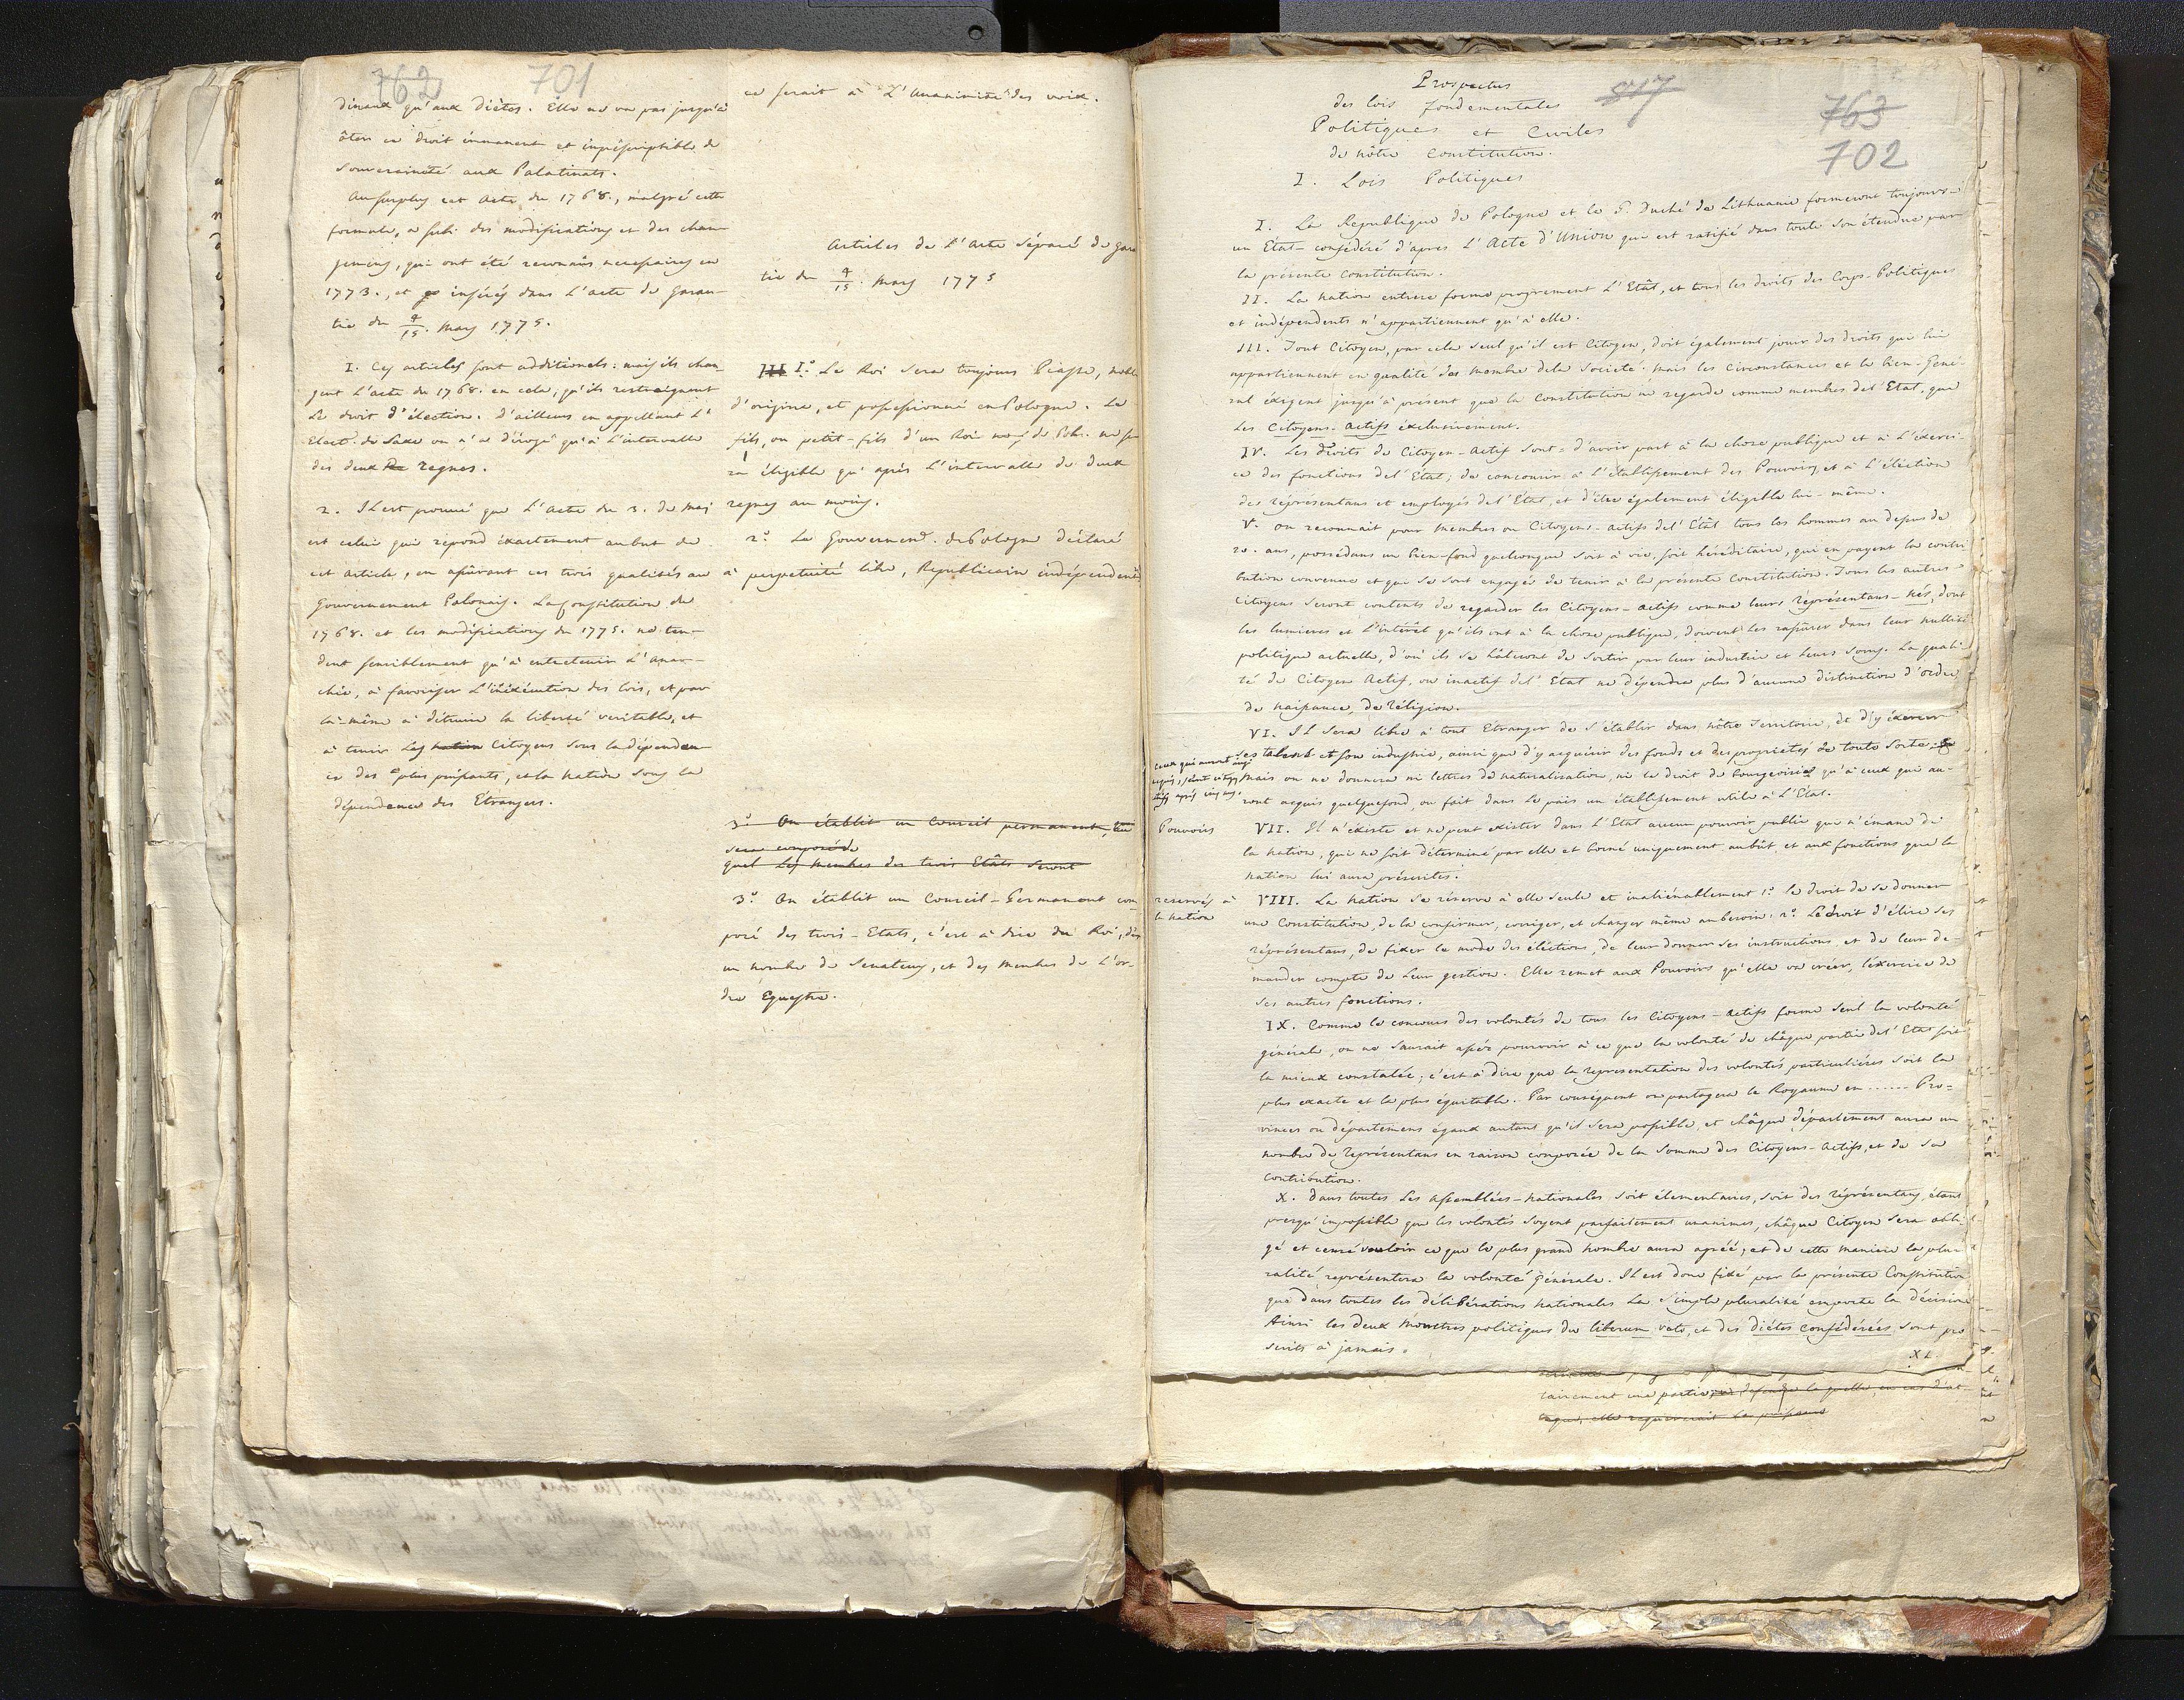 762 701
dinaux qu'aux Diètes. Elle ne va pas jusqu'à
ôter ce droit immanent et impréscriptible de
Souveraineté aux Palatinats.
Au surplus cet Acte de 1768., malgré cette
formule, a subi des modifications et des chan-
gemens, qui ont été reconnûs necessaires en
1773., et insérés dans L'acte de garan-
tie du 4/15. Mars 1775.
I. Ces articles sont additionels: mais ils chan
gent L'acte de 1768. en cela, qu'ils restraignent
Le droit d'élection. D'ailleurs en appellant L'
Elect. de Saxe on n'a dérogé qu'à L'intervalle
des deux regnes.
2. Il est prouvé que L'Acte du 3. de Mai
est celui qui repond éxactement au but de
cet article, en assurant ces trois qualités au
Gouvernement Polonais. La Constitution de
1768. et les modifications de 1775. ne ten-
dent sensiblement qu'à entretenir L'anar-
chie, à favoriser L'inéxécution des lois, et par
là-même à détruire la liberté veritable, et
à tenir Les nation Citoyens sous la dépenden-
ce des plus puissants, et la nation sous la
dépendence des Etrangers.
ce serait à L'Unanimité des voix.
Articles de L'Acte séparé de gara
tie du 4/15. Mars 1775
III I.° Le Roi sera toujours Piaste, noble
d'origine, et possessionné en Pologne. Le
fils, ou petit-fils d'un Roi de Pol. ne se
ra éligible qu'après L'intervalle de deux
regnes au moins.
2.° Le Gouvernem. de Pologne déclaré
à perpetuité libre, Republicain indépendent
3.° On établit un Conseil permanent,
sera composé de
quel Les membres des trois Etâts seront
3.° On établit un Conseil-Permanent com
posé des trois-Etats, c'est à dire du Roi, d'
un nombre de Senateurs, et des membres de L'or-
dre Equestre.
Prospectus
des lois fondementales
Politiques et Civiles
de nôtre Constitution.
817
763
702
I. Lois Politiques
I. La Republique de Pologne et le G. Duché de Lithuanie formeront toujours
un Etat-confédéré d'apres L'Acte d'Union qui est ratifié dans toute son étendue par
la présente Constitution.
II. La nation entiere forme proprement L'Etât, et tous les droits des Corps-Politiques
et indépendents n'appartiennent qu'à elle.
III. Tout Citoyen, par cela seul qu'il est Citoyen, doit également jouir des droits qui lui
appartiennent en qualité de membre de la Societé. Mais les circonstances et le bien-géné-
ral éxigent jusqu'à présent que la Constitution ne regarde comme membres de l'Etat, que
Les Citoyens-actifs éxclusivement.
IV. Les droits de Citoyen-Actif sont= d'avoir part à la chose publique et à L'éxerci-
ce des fonctions de l'État; de concourir à L'établissement des Pouvoirs, et à L'éléction
des réprésentans et employés de l'Etat, et d'être également éligible lui-même.
V. On reconnait pour membres ou Citoyens-actifs de l'Etât tous les hommes au dessus de
20. ans, possédans un bien-fond quelconque soit à vie, soit héréditaire, qui en payent la contri
bution convenue et qui se sont engagés de tenir à la présente Constitution. Tous les autres
Citoyens seront contents de regarder les Citoyens-actifs comme leurs réprésentans-nés, dont
les lumieres et L'intérêt qu'ils ont à la chose publique, doivent les rassûrer dans leur nullité
politique actuelle, d'où ils se hâteront de sortir par leur industrie et leurs soins. La quali-
té de Citoyen Actif, ou inactif de l'Etat ne dépendra plus d'aucune distinction d'ordre
de naissance, de réligion.
VI. Il sera libre à tout Etranger de s'établir dans nôtre Territoire, et d'y éxercer
ses talens et son industrie, ainsi que d'y acquérir des fonds et des proprietés de toute sorte
Mais on ne donnera ni lettres de naturalisation, ni le droit de bourgeoisie qu'à ceux qui au-
ront acquis quelque fond, ou fait dans Le païs un établissement utile à L'Etat.
Pouvoirs
VII. Il n'éxiste et ne peut exister dans L'Etat aucun pouvoir public qui n'émane de
la nation, qui ne soit déterminé par elle et borné uniquement au bût et aux fonctions que la
nation lui aura préscrites.
reservés à
la nation
VIII. La nation se réserve à elle seule et inaliénablement 1.° le droit de se donner
une Constitution, de la confirmer, corriger, et changer même au besoin. 2.° Le droit d'élire ses
réprésentans, de fixer le mode des éléctions, de leur donner ses instructions et de leur de-
mander compte de leur gestion. Elle remet aux Pouvoirs qu'elle va créer, l'éxercice de
ses autres fonctions.
IX. Comme le concours des volontés de tous les Citoyens-actifs forme seul la volonté
générale, on ne saurait assés pourvoir à ce que la volonté de châque partie de l'Etat soit
le mieux constatée; c'est à dire que la representation des volontés particulières soit la
plus exacte et la plus équitable. Par conséquent on partagera le Royaume en ...... Pro=
vinces ou départemens égaux autant qu'il sera possible, et châque département aura un
nombre de réprésentans en raison composée de la somme des Citoyens-actifs, et de sa
contribution.
X. Dans toutes Les Assemblées-nationales soit élementaires, soit des réprésentans, étant
presqu'impossible que les volontés soyent parfaitement unanimes, châque Citoyen sera obli-
gé et censé vouloir ce que le plus grand nombre aura agréé; et de cette maniere la plu-
ralité représentera la volonté générale. Il est donc fixé par la présente Constitution
que dans toutes les délibérations nationales La simple pluralité emporte la décision
Ainsi les deux monstres politiques du liberum veto, et des diètes confédérées sont pro
scrits à jamais.
XI.
rairement une partie